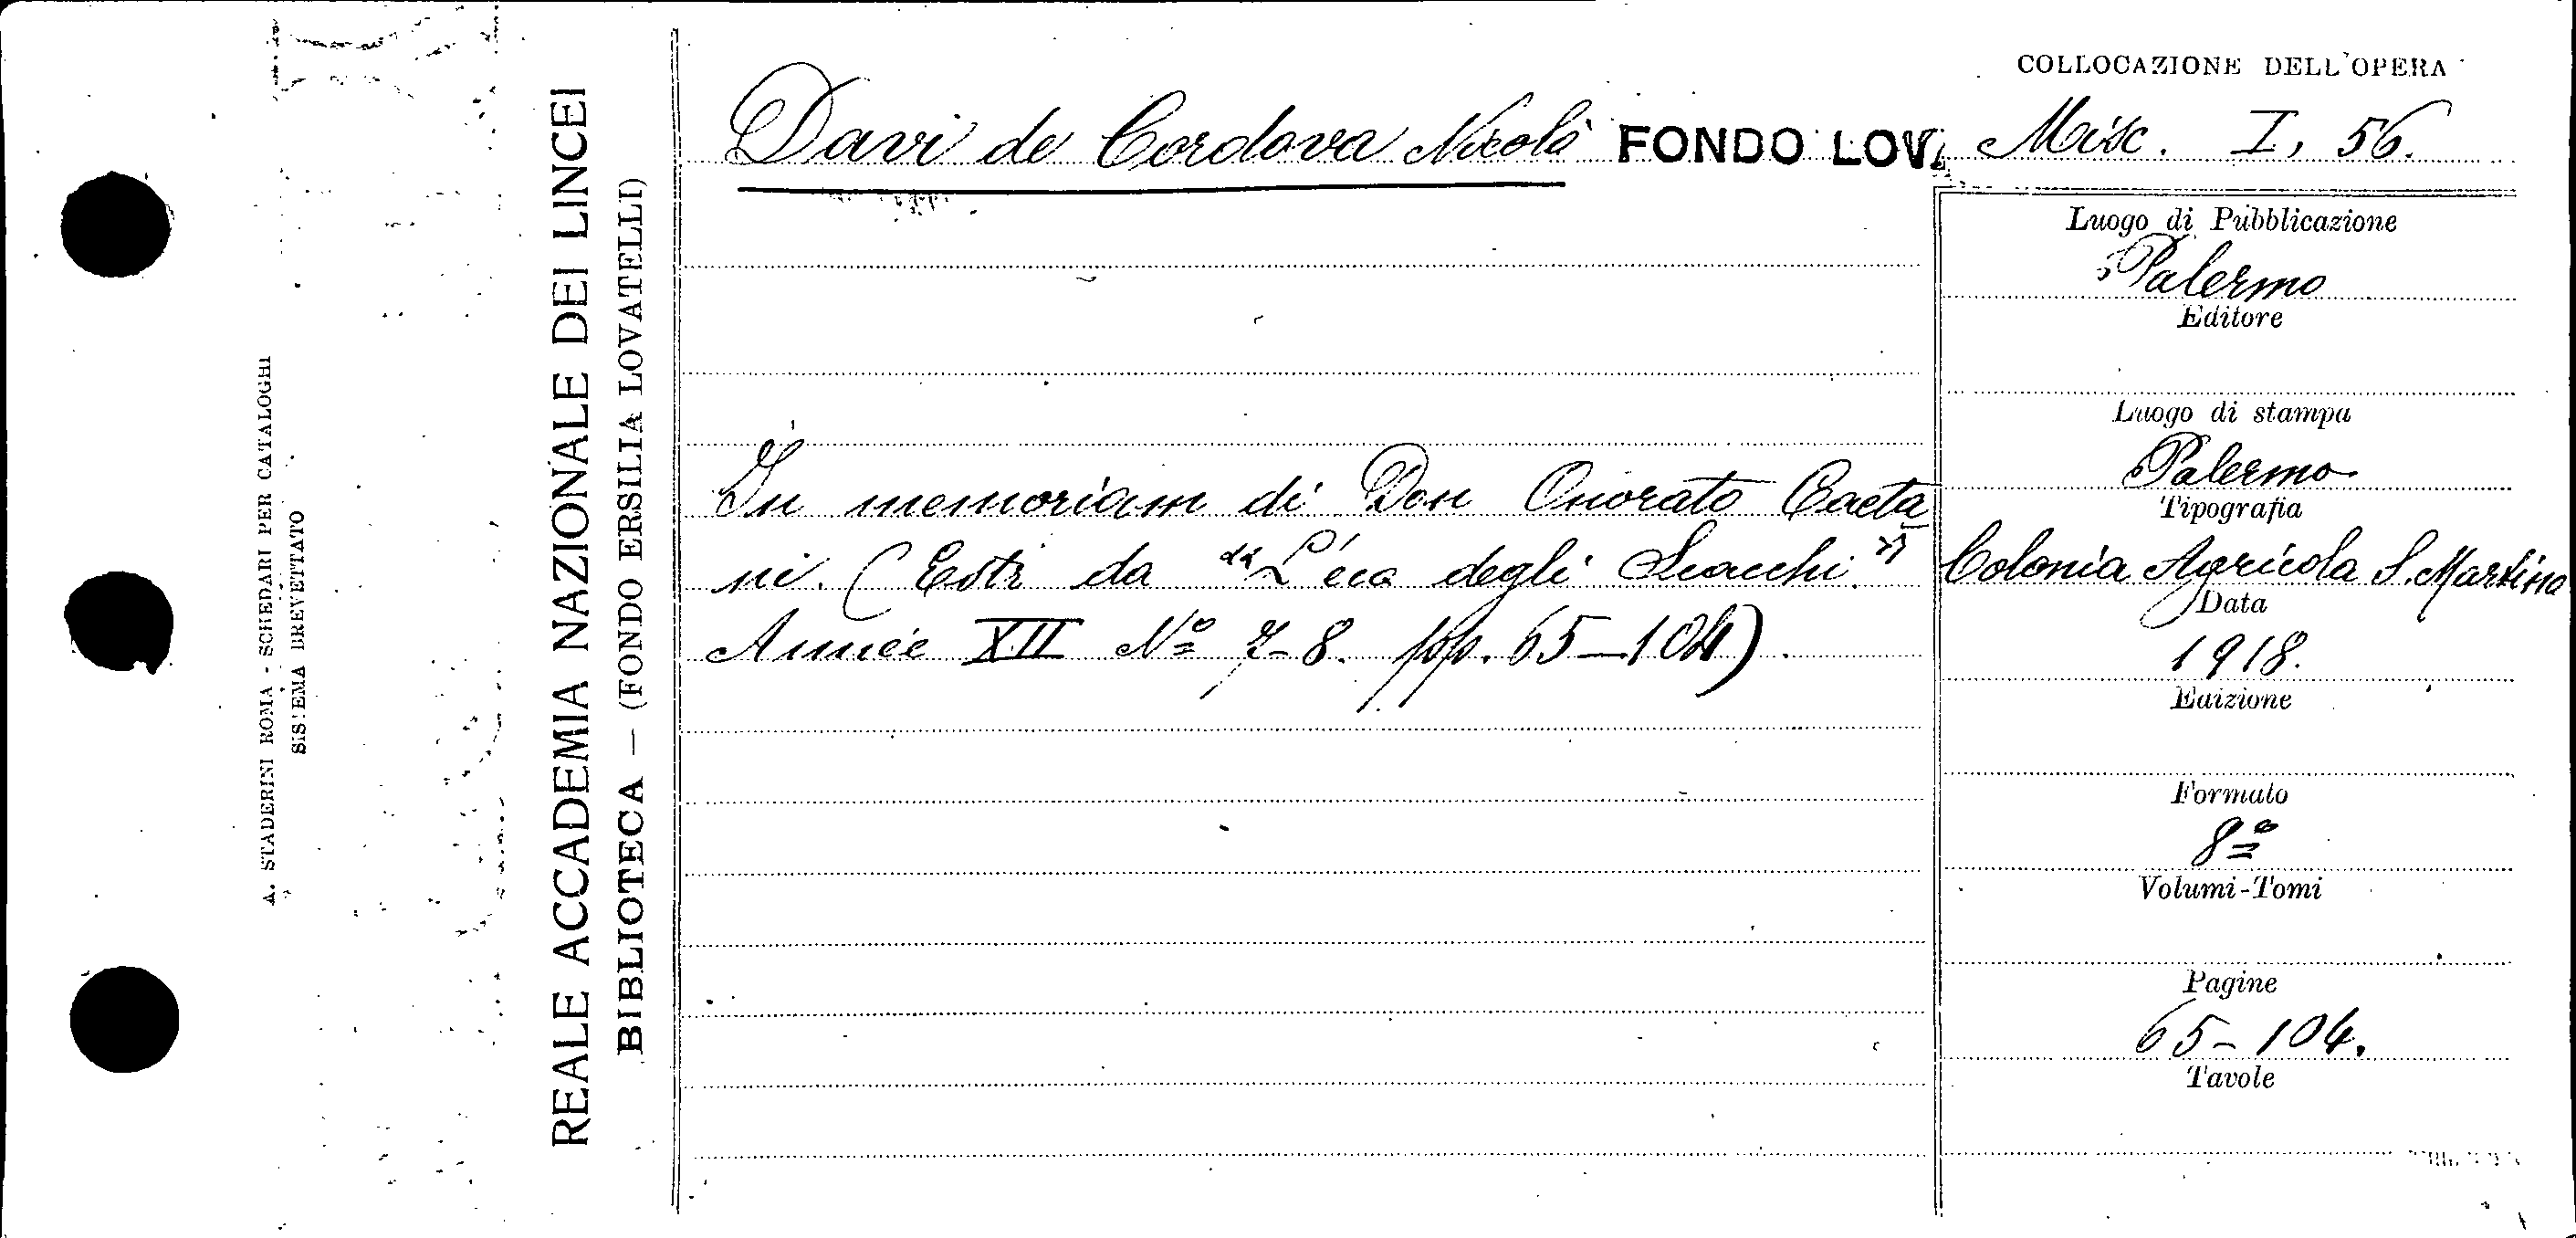 A. STADERINI ROMA - SCHEDARI PER CATALOGHI
SISTEMA BREVETTATO
REALE ACCADEMIA NAZIONALE DEI LINCEI
BIBLIOTECA — (FONDO ERSILIA LOVATELLI)
Davi de Cordova Nicolò FONDO LOV.
In memoriam di Don Onorato Caeta
ni. (Estr da "L'eco degli Scacchi."
Année XII Nº 7-8. pp. 65-104).
COLLOCAZIONE DELL'OPERA
Misc. I, 56.
Luogo di Pubblicazione
Palermo
Editore
Luogo di stampa
Palermo
Tipografia
Colonia Agricola S. Martino
Data
1918.
Edizione
Formato
8º
Volumi-Tomi
Pagine
65-104.
Tavole